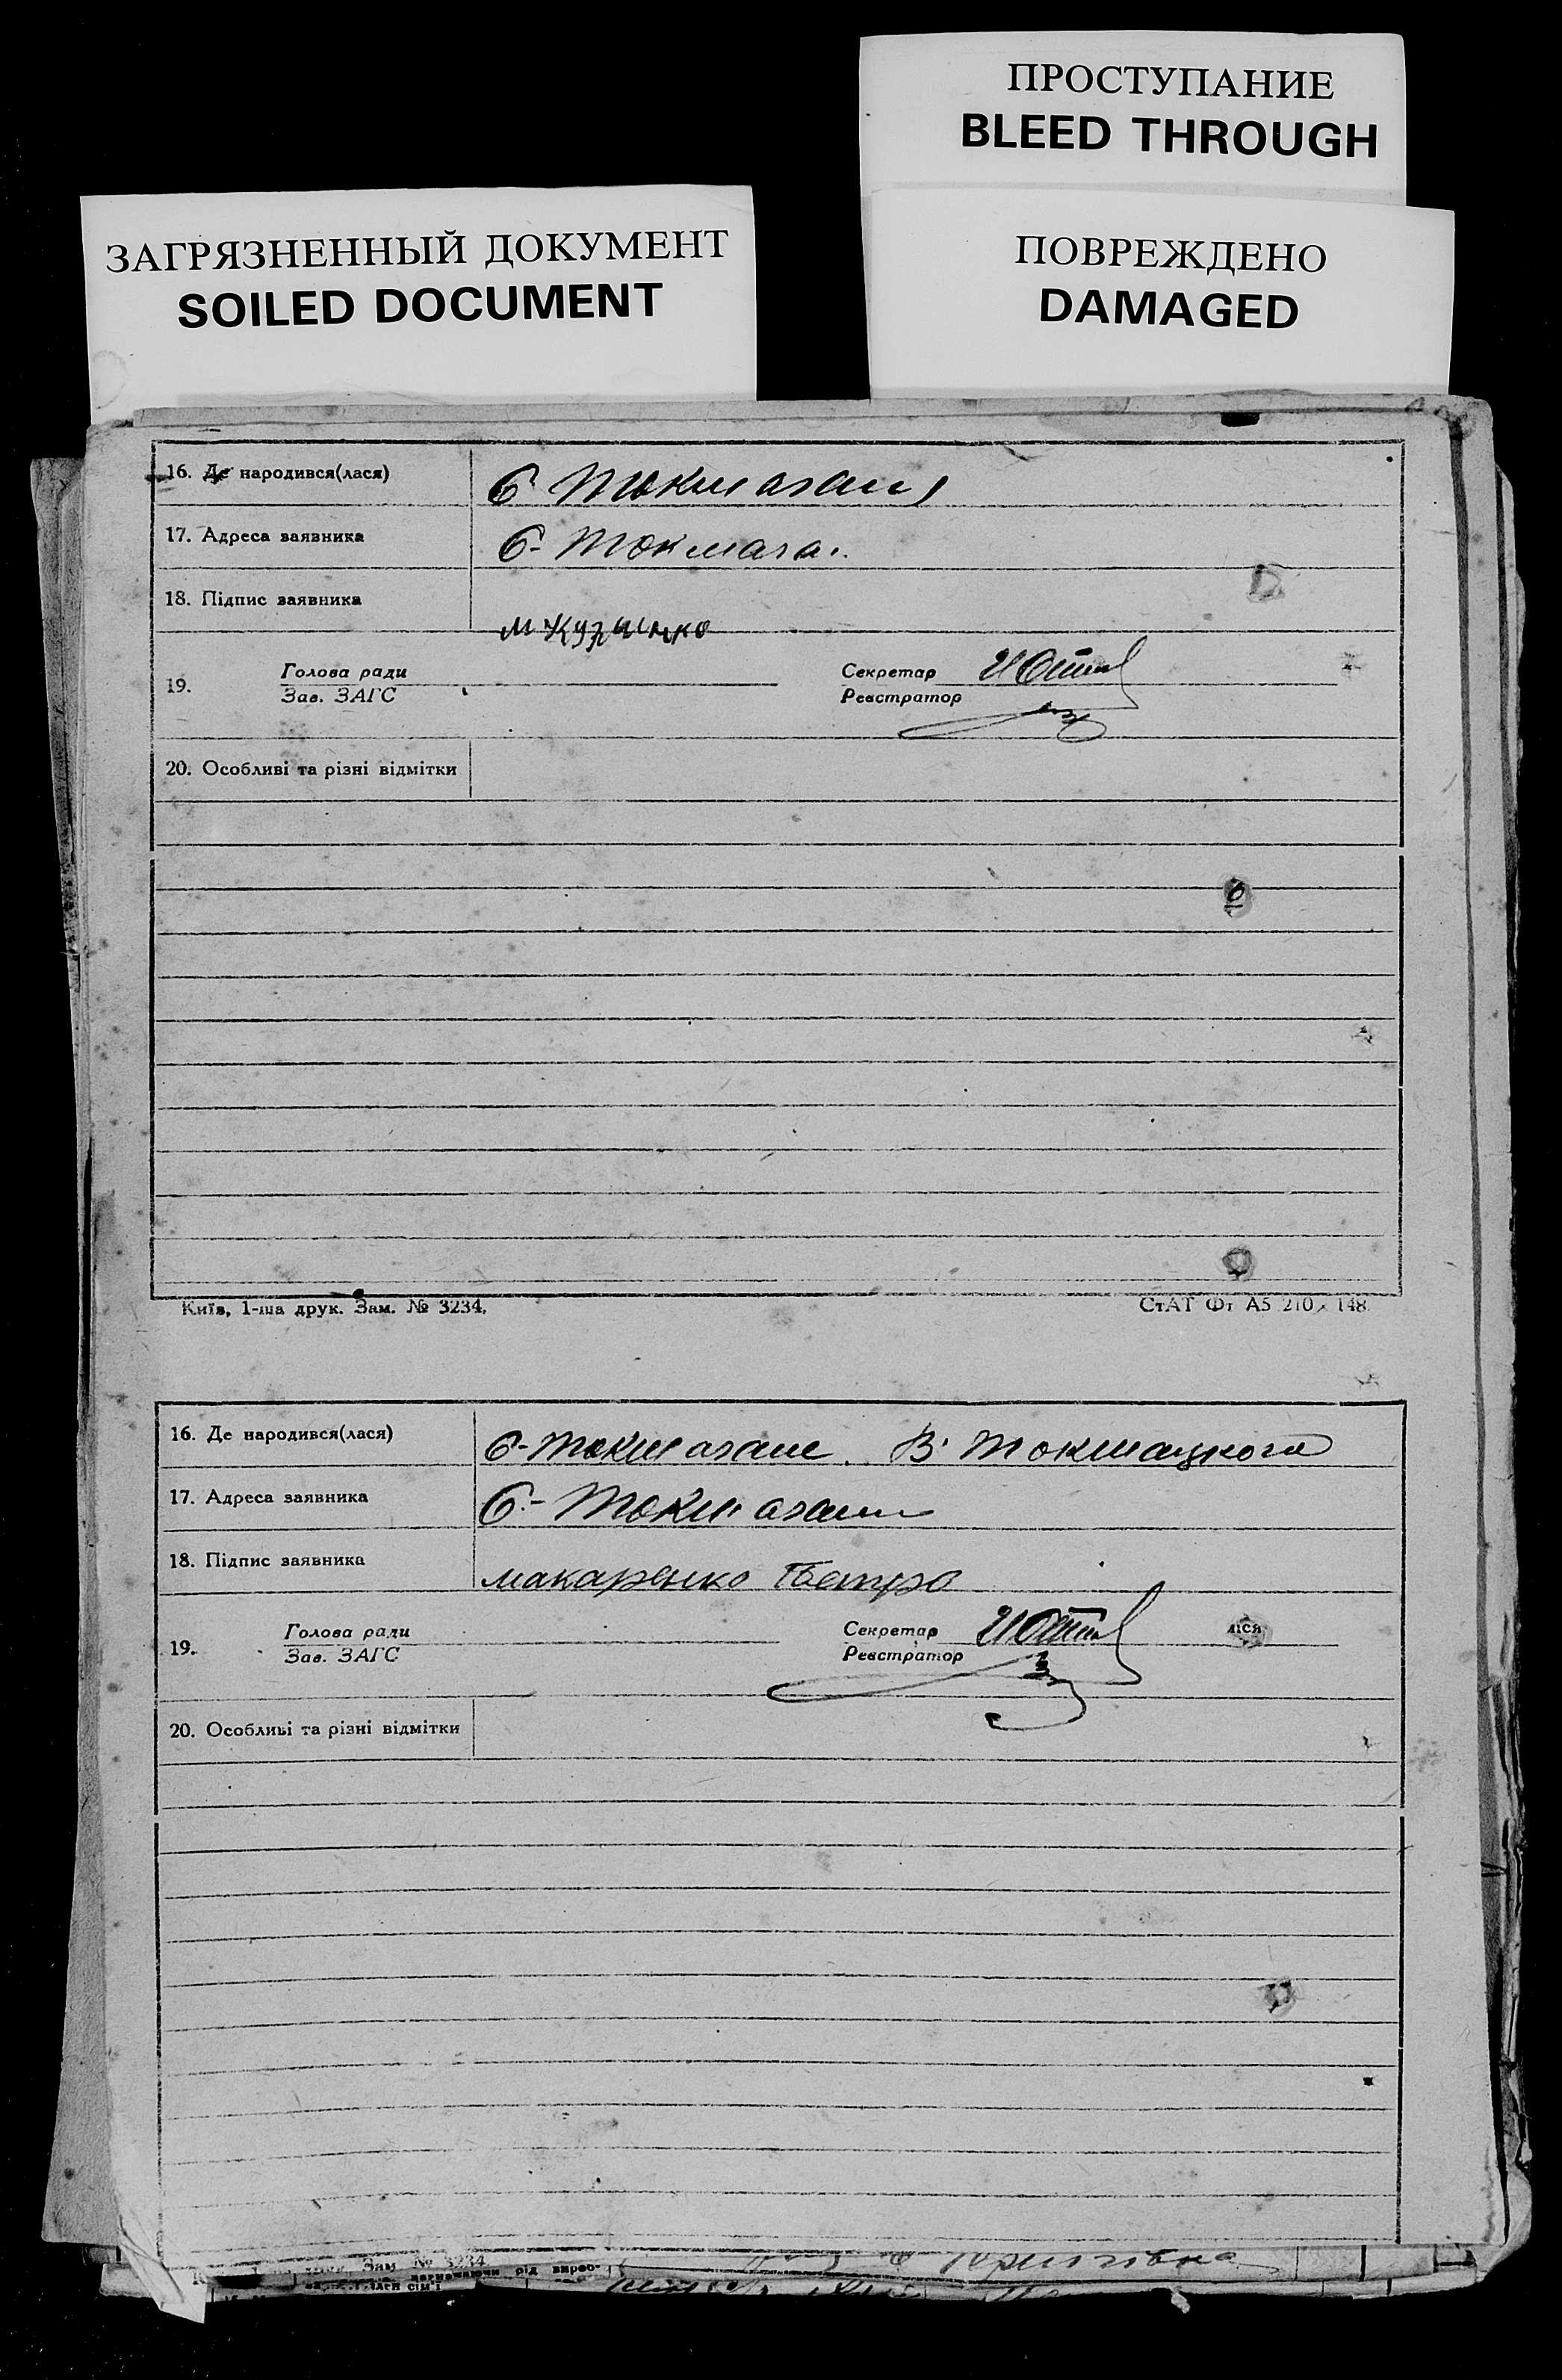 ПРОСТУПАНИЕ
BLEED THROUGH
ЗАГРЯЗНЕННЫЙ ДОКУМЕНТ
SOILED DOCUMENT
ПОВРЕЖДЕНО
DAMAGED
16. Де народився(лася)
17. Адреса заявника
18. Підпис заявника
19. Голова ради Секретар
Зав. ЗАГС Реєстратор
20. Особливі та різні відмітки
6
Київ, 1-ша друк. Зам. № 3234. СтАТ Фт А5 210 × 148.
16. Де народився(лася) В. Токмацкого
17. Адреса заявника
18. Підпис заявника макаренко Петро
19. Голова ради Секретар
Зав. ЗАГС Реєстратор
20. Особливі та різні відмітки
Зам. № 3234
член сім'ї